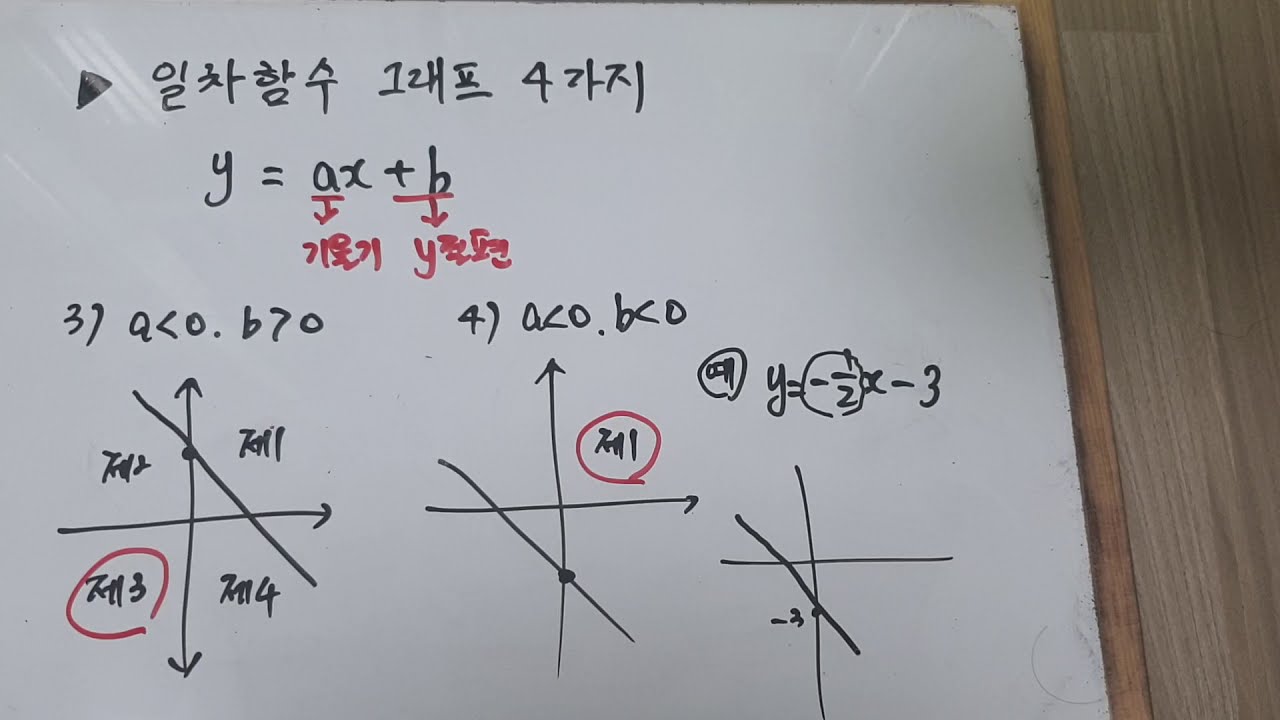 ▶ 일차함수 그래프 4가지
y = ax + b
기울기 y절편
3) a<0. b>0
4) a<0. b<0
제2 제1
제3 제4
제1
예 y=(-1/2)x-3
-3